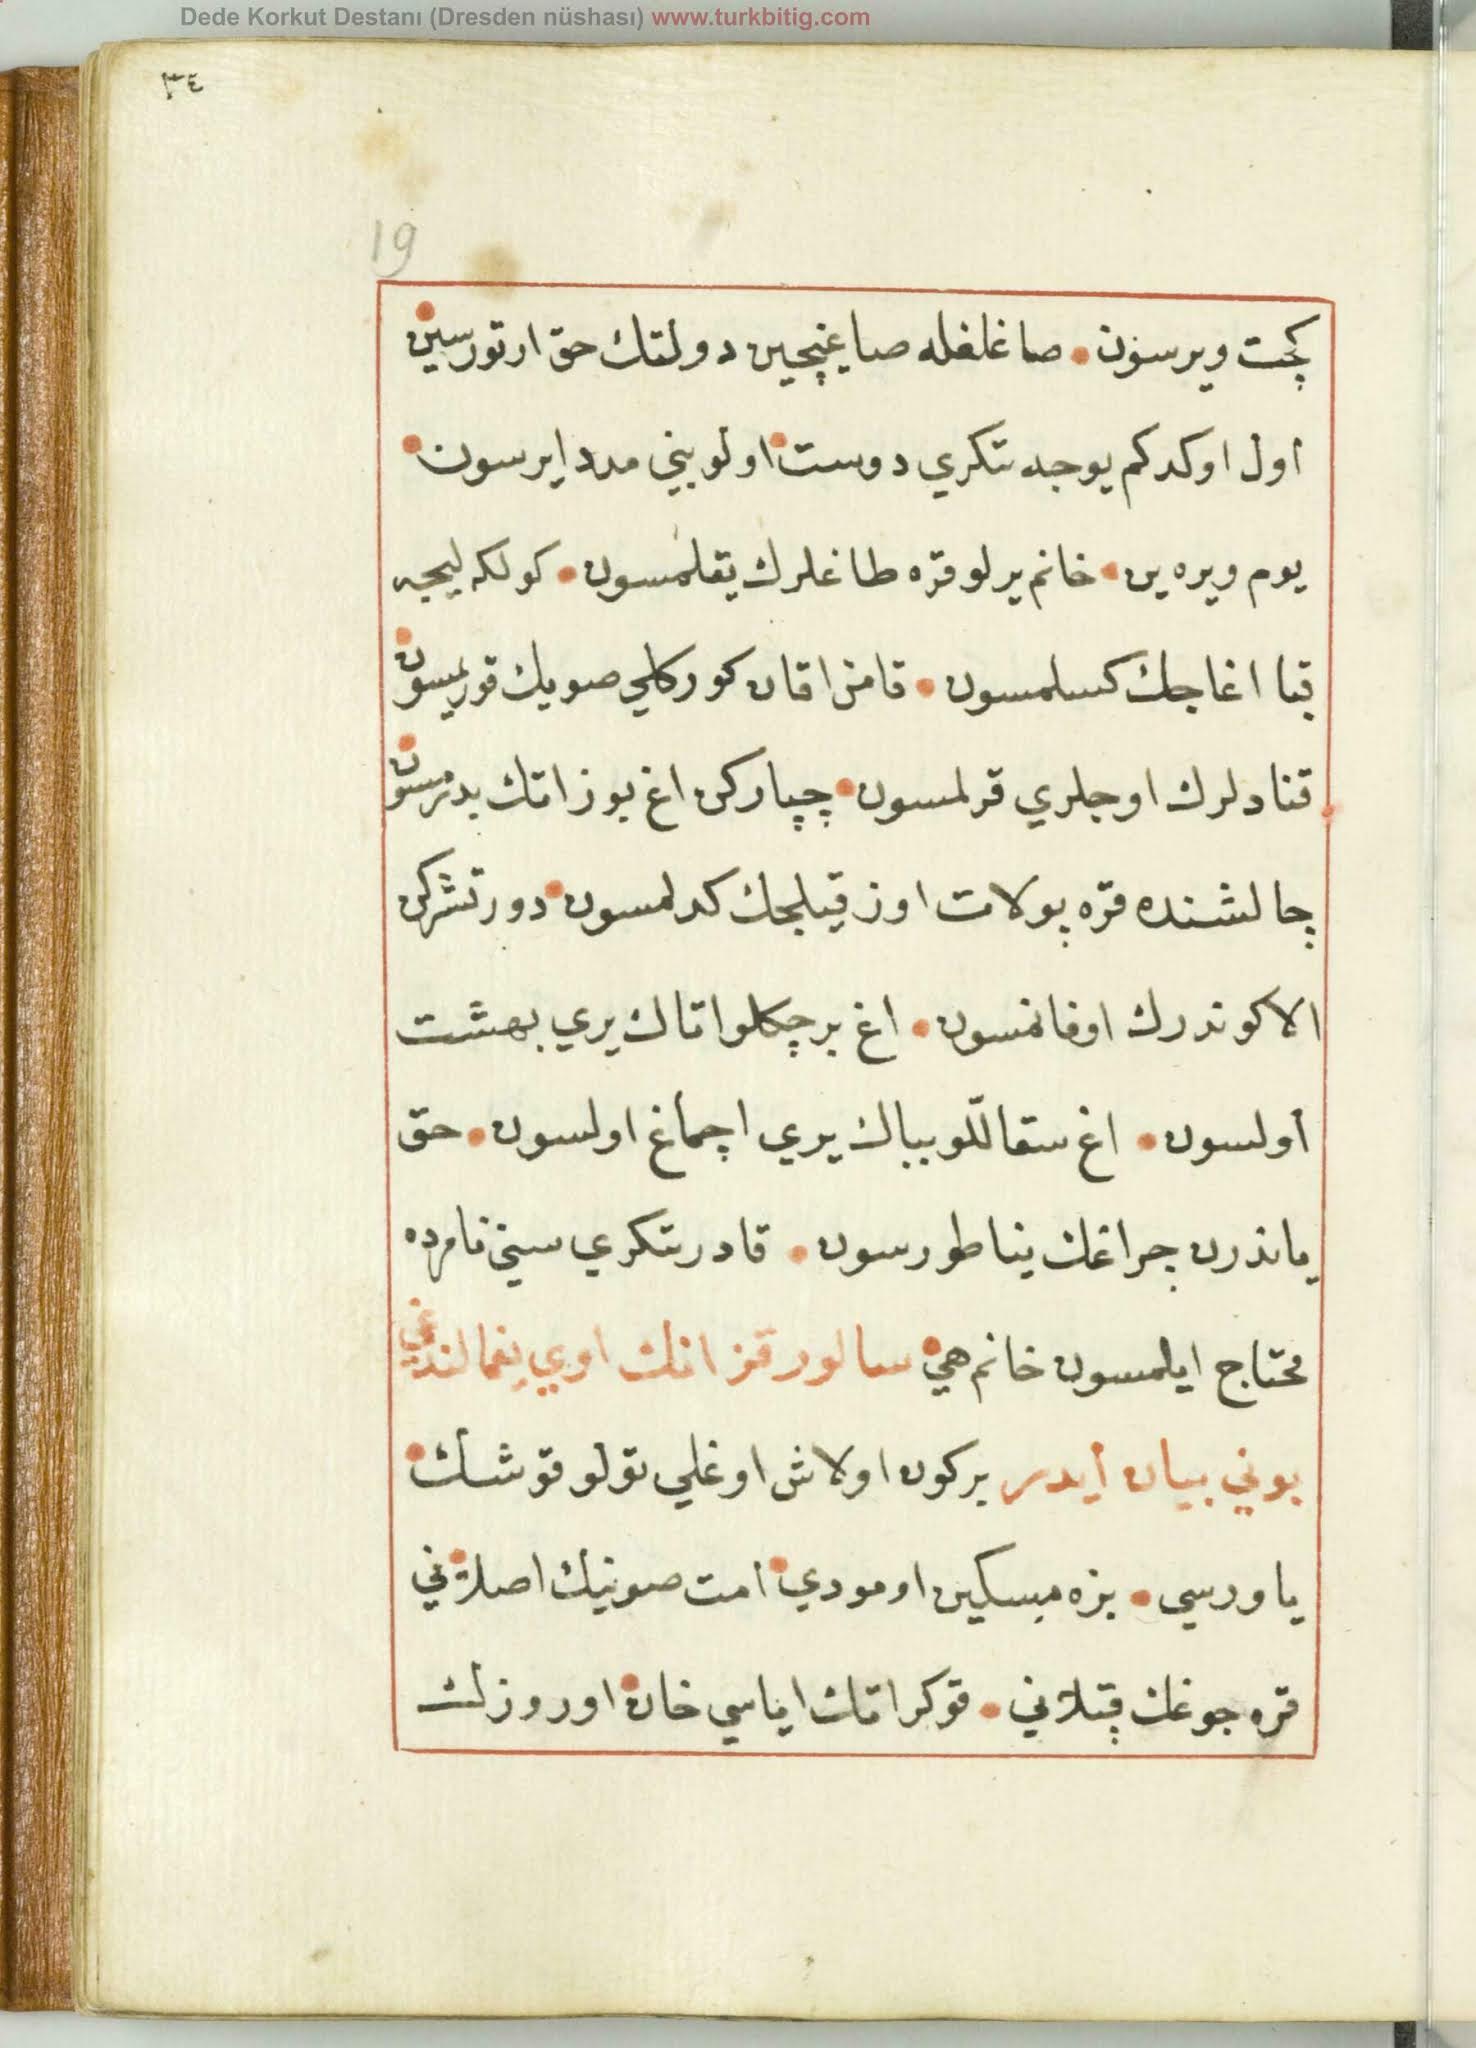 Dede Korkut Destanı (Dresden nüshası) www.turkbitig.com
٣٤
19
كچت ويرسون صاغلغله صاغنچين دولتك حق ارتورسين
اول اوكدكم يوجه تنكري دوست اولوبيني مدد ايرسون
يوم ويره ين خانم يرلو قره طاغلرك يقلمسون كولكه ليجه
قبا اغاجك كسلمسون قامن اقان كوركلي صويك قوريمسون
قنادلرك اوجلري قرلمسون چپاركن اغ بوز اتك بدرمسون
چالشنده قره پولات اوز قيلجك كدلمسون دورتشركن
الا كوندرك اوفانمسون اغ برچكلو اناك يري بهشت
اولسون اغ سقاللو بباك يري اچماغ اولسون حق
ياندرن چراغك يناطورسون قادر تنكري سيني نامرده
محتاج ايلمسون خانم هي سالور قزانك اوي يغمالندغي
بوني بيان ايدر بركون اولاش اوغلي تولو قوشك
ياورسي بزه مسكين اومودي امت صوينك اصلاني
قره جوغك قپلاني قوكر اتك اياسي خان اوروزك